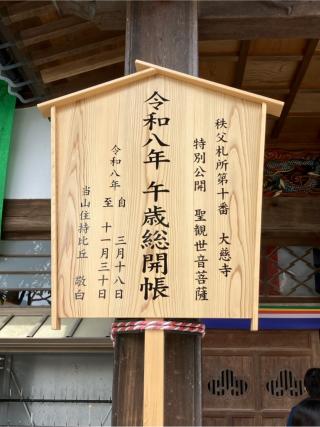 秩父札所第十番　大慈寺
特別公開　聖観世音菩薩
令和八年　午歳総開帳
令和八年　自　三月十八日
至　十一月三十日
当山住持比丘　敬白